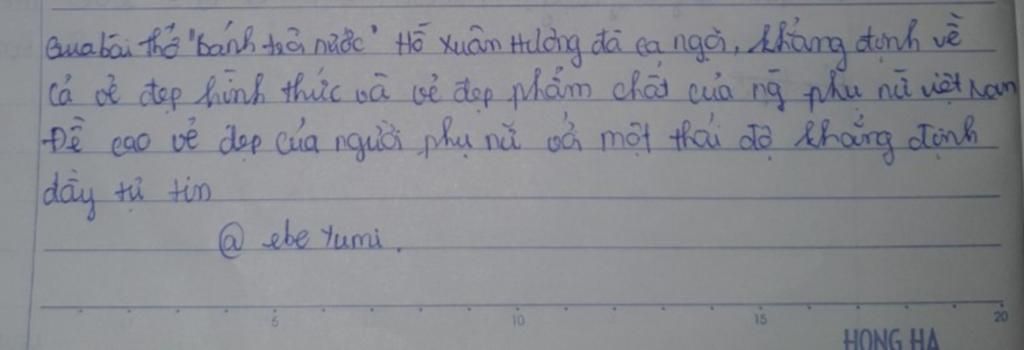 Qua bài thơ "bánh trôi nước" Hồ Xuân Hương đã ca ngợi, khẳng định về
cả vẻ đẹp hình thức và vẻ đẹp phẩm chất của ng phụ nữ việt nam
Đề cao vẻ đẹp của người phụ nữ với một thái độ khẳng định
đầy tự tin
@ ebe Yumi.
5 10 15 20
HONG HA